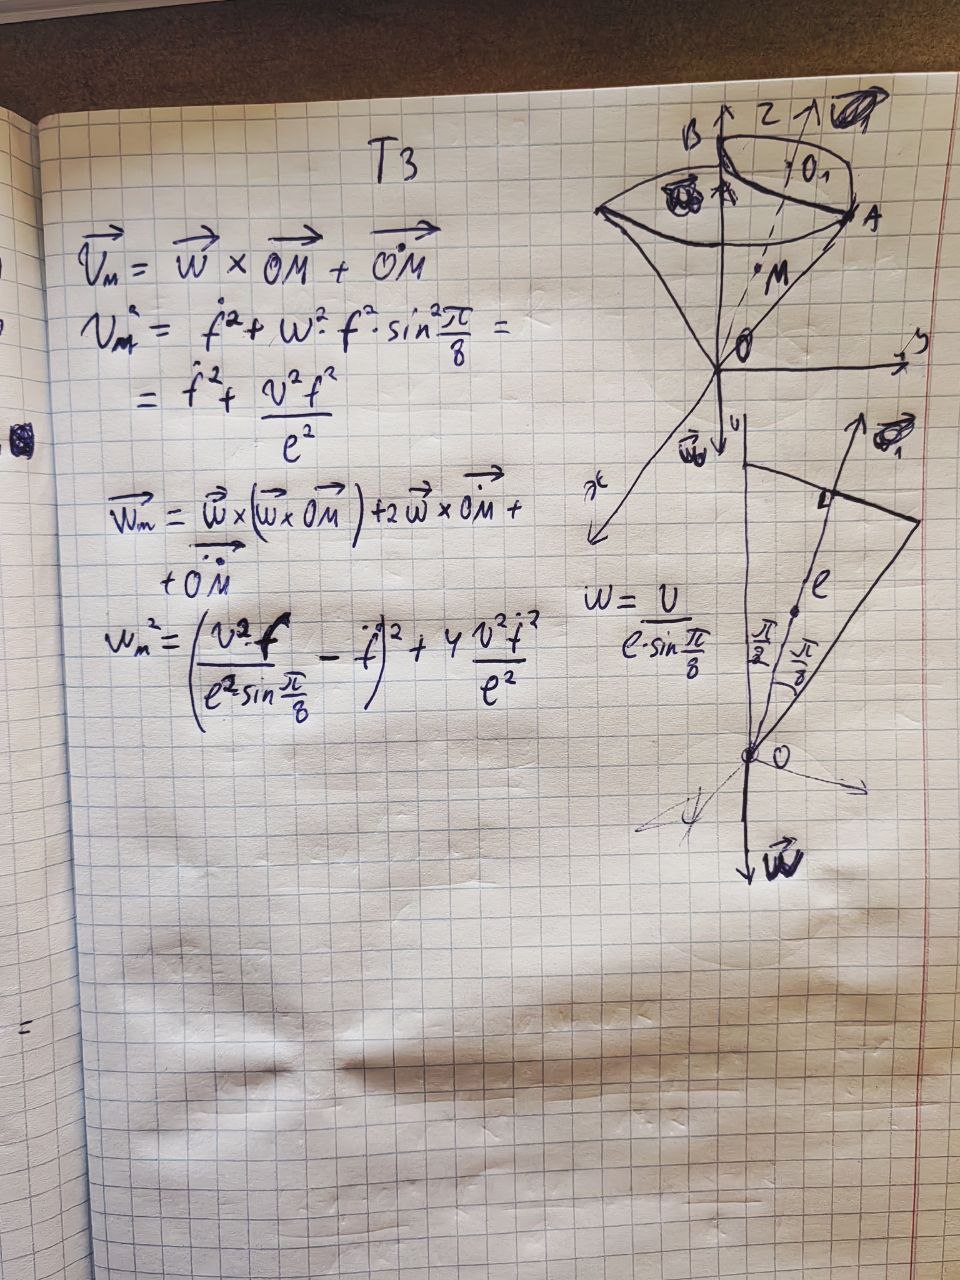 T3
V⃗ₘ = w⃗ × OM⃗ + OṀ⃗
Vₘ² = ḟ² + w²·f²·sin² π/8 =
= ḟ² + v²f²/e²
w⃗ₘ = w⃗×(w⃗×OM⃗) + 2w⃗×OṀ⃗ +
+ OM̈⃗
wₘ² = (v²·f/(e²·sin π/8) − f̈)² + 4 v²ḟ²/e²
w = v/(e·sin π/8)
B
z
O₁
A
M
O
y
x
e
π/8
O
w⃗